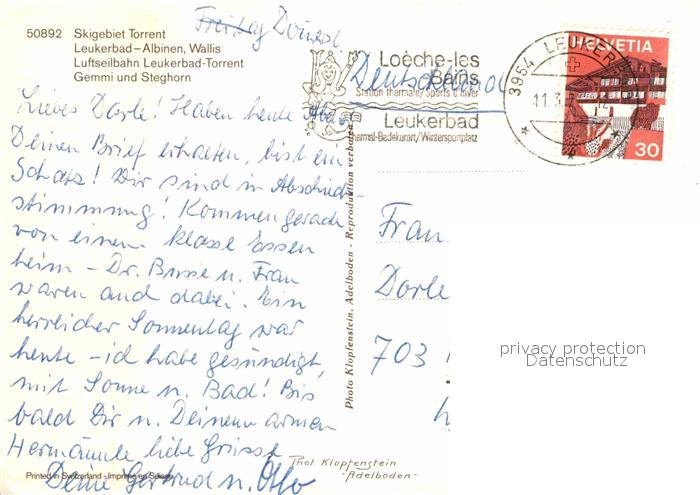 Freitag
50892 Skigebiet Torrent
Leukerbad – Albinen, Wallis
Luftseilbahn Leukerbad-Torrent
Gemmi und Steghorn
Liebes Dorle! Haben heute
Deinen Brief erhalten, bist ein
Schatz! Wir sind in Abschied-
stimmung! Kommen gerade
von einem klasse Essen
heim – Dr. Busse u. Frau
waren auch dabei. Ein
herrlicher Sonnentag war
heute – ich habe gesündigt,
mit Sonne u. Bad! Bis
bald Dir u. Deinem armen
Hermännle liebe Grüsse
Deine Gertrud u. Otto
Printed in Switzerland - Imprimé en Suisse
Photo Klopfenstein, Adelboden - Reproduktion verboten
Loèche-les
Bains
Station thermale/Sports d'hiver
Leukerbad
Thermal-Badekurort/Wintersportplatz
Deutschland
3954 LEUKERBAD
11.3.7
HELVETIA
30
Frau
Dorle
703
privacy protection
Datenschutz
Phot. Klopfenstein
-Adelboden-